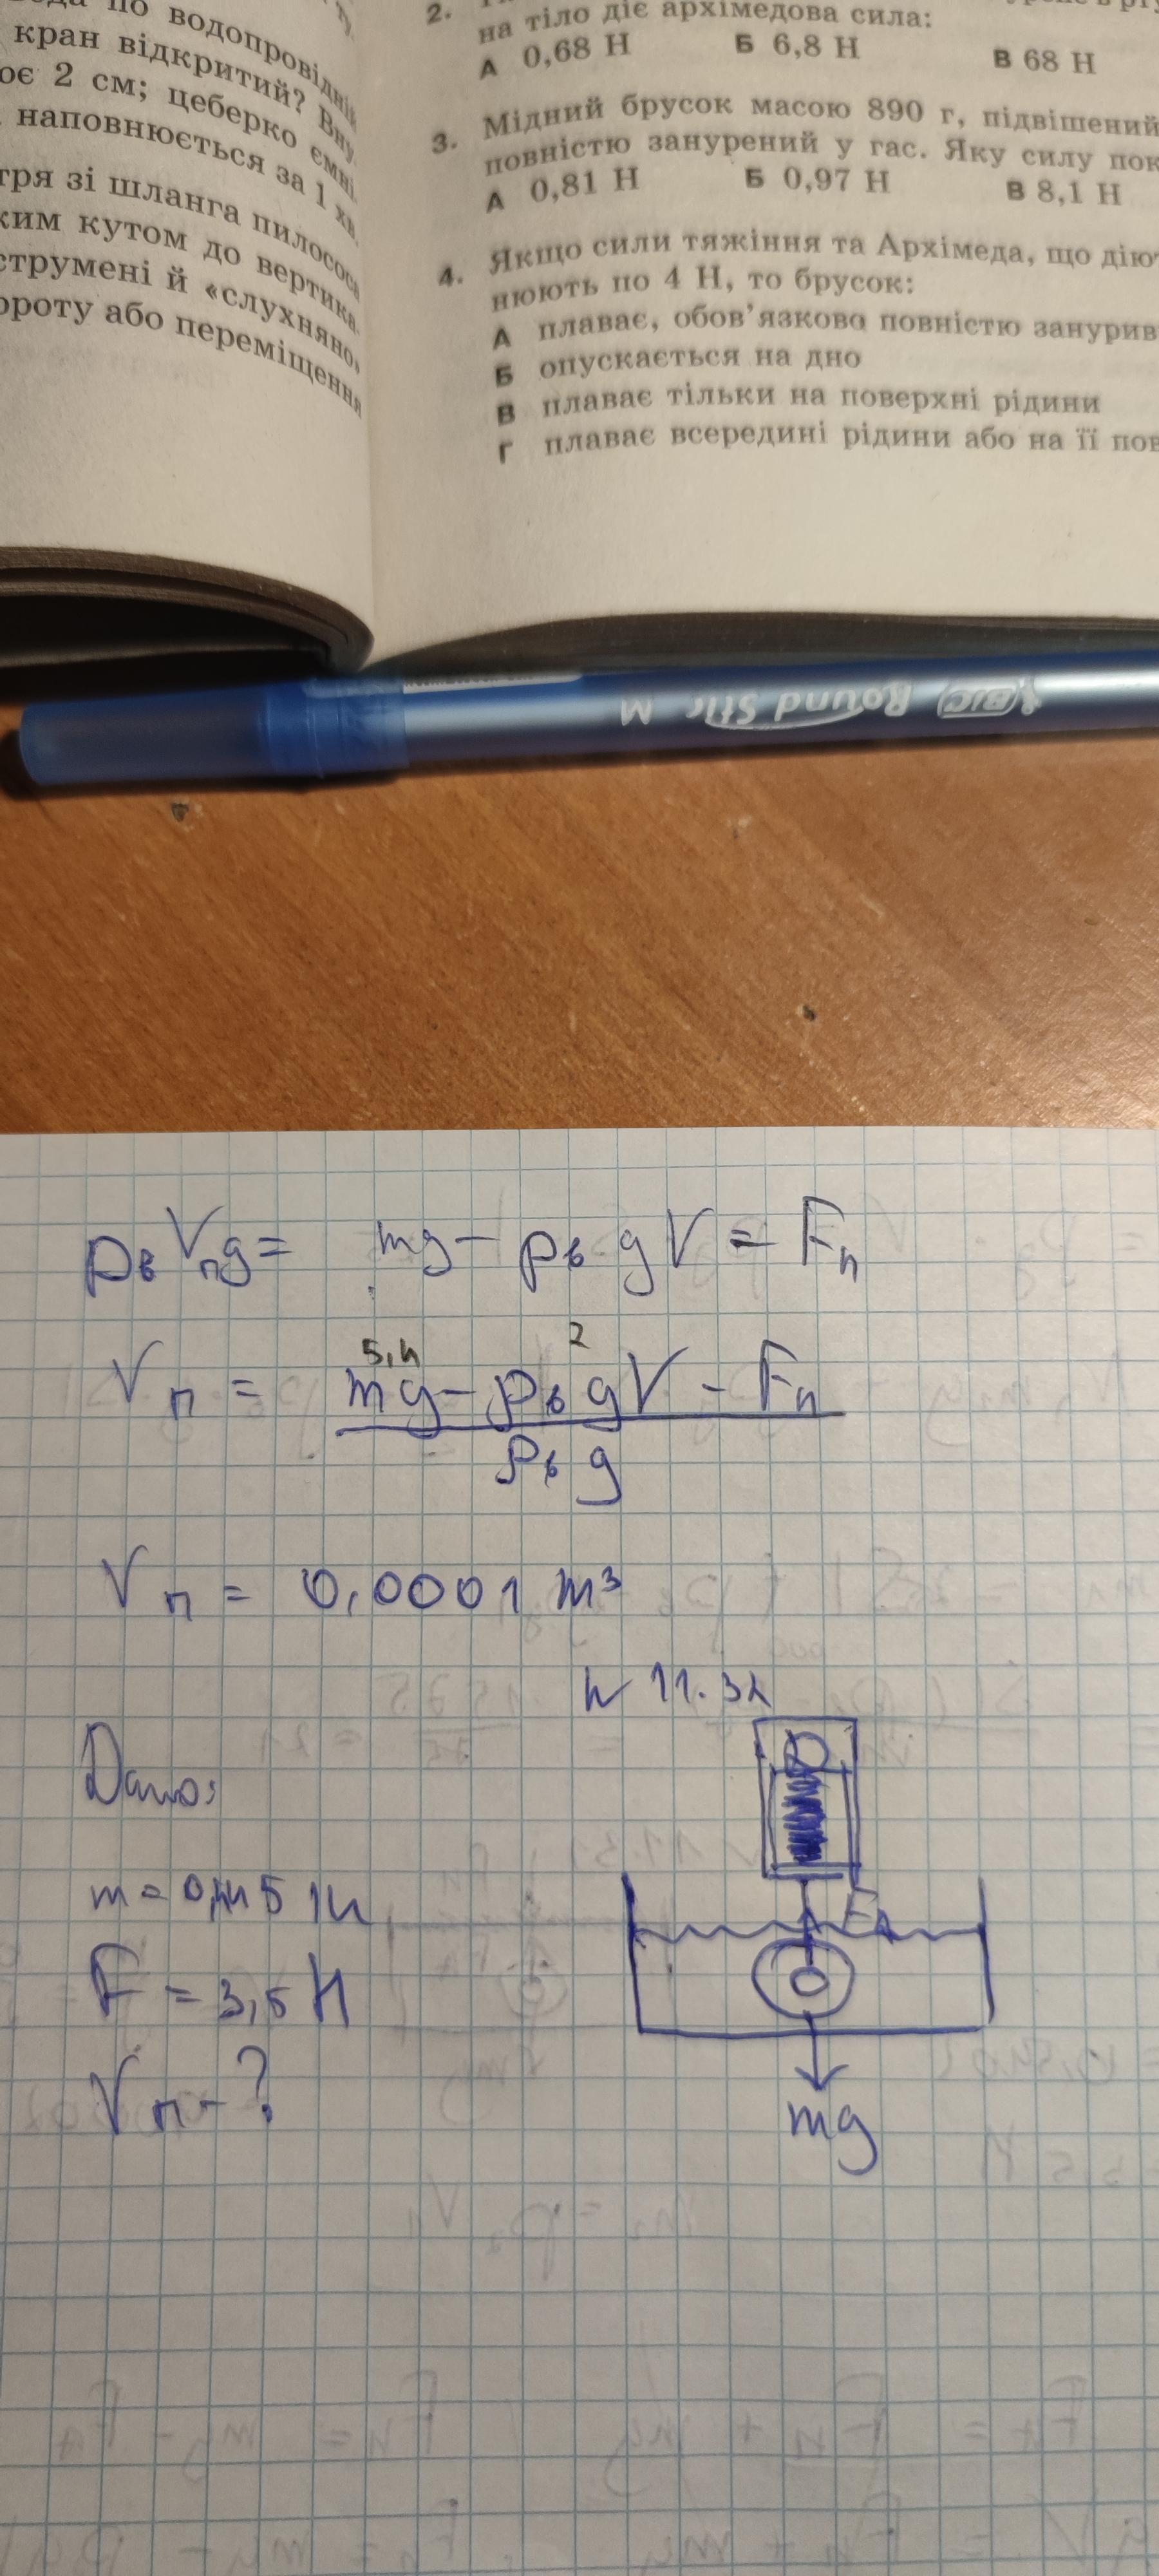 по водопровідній
кран відкритий?
ює 2 см; цеберко
наповнюється за 1 хв
тря зі шланга пилососа
ким кутом до
струмені й «слухняно»
ороту або переміщення
2.
на тіло діє архімедова сила:
А 0,68 Н Б 6,8 Н В 68 Н
3. Мідний брусок масою 890 г, підвішений
повністю занурений у гас. Яку силу пок
А 0,81 Н Б 0,97 Н В 8,1 Н
4. Якщо сили тяжіння та Архімеда, що дію
нюють по 4 Н, то брусок:
А плаває, обов'язково повністю занурив
Б опускається на дно
В плаває тільки на поверхні рідини
Г плаває всередині рідини або на її пов
BIC Round Stic M
ρв Vп g = mg - ρв g V = Fп
5,4 2
Vп = mg - ρв g V - Fп
ρв g
Vп = 0,0001 m³
N 11.32
Дано:
F = 3,5 Н
Vп - ?
FA
mg